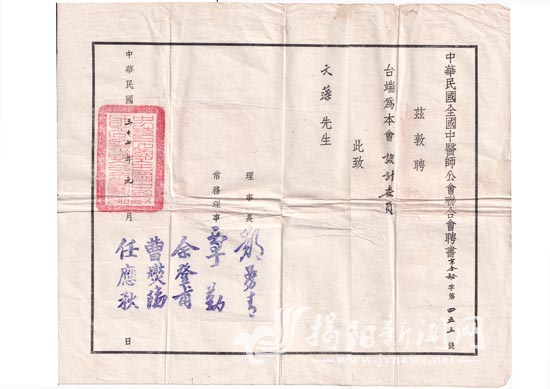 中華民國全國中醫師公會聯合會聘書京合秘字第四五三號
茲敦聘
台端為本會設計委員
此致
文藻先生
理事長 鄭曼青
常務理事 覃勤
余登甫
曹燮陽
任應秋
中華民國三十七年元月 日
揭阳新闻网